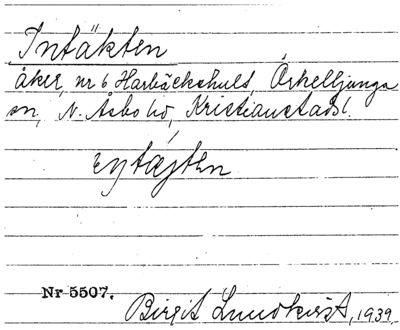 Intäkten
åker, nr 6 Harbäckshult, Örkelljunga
sn, N. Åsbo hd, Kristianstads l.
Nr 5507.
Birgit Lundkvist, 1939.